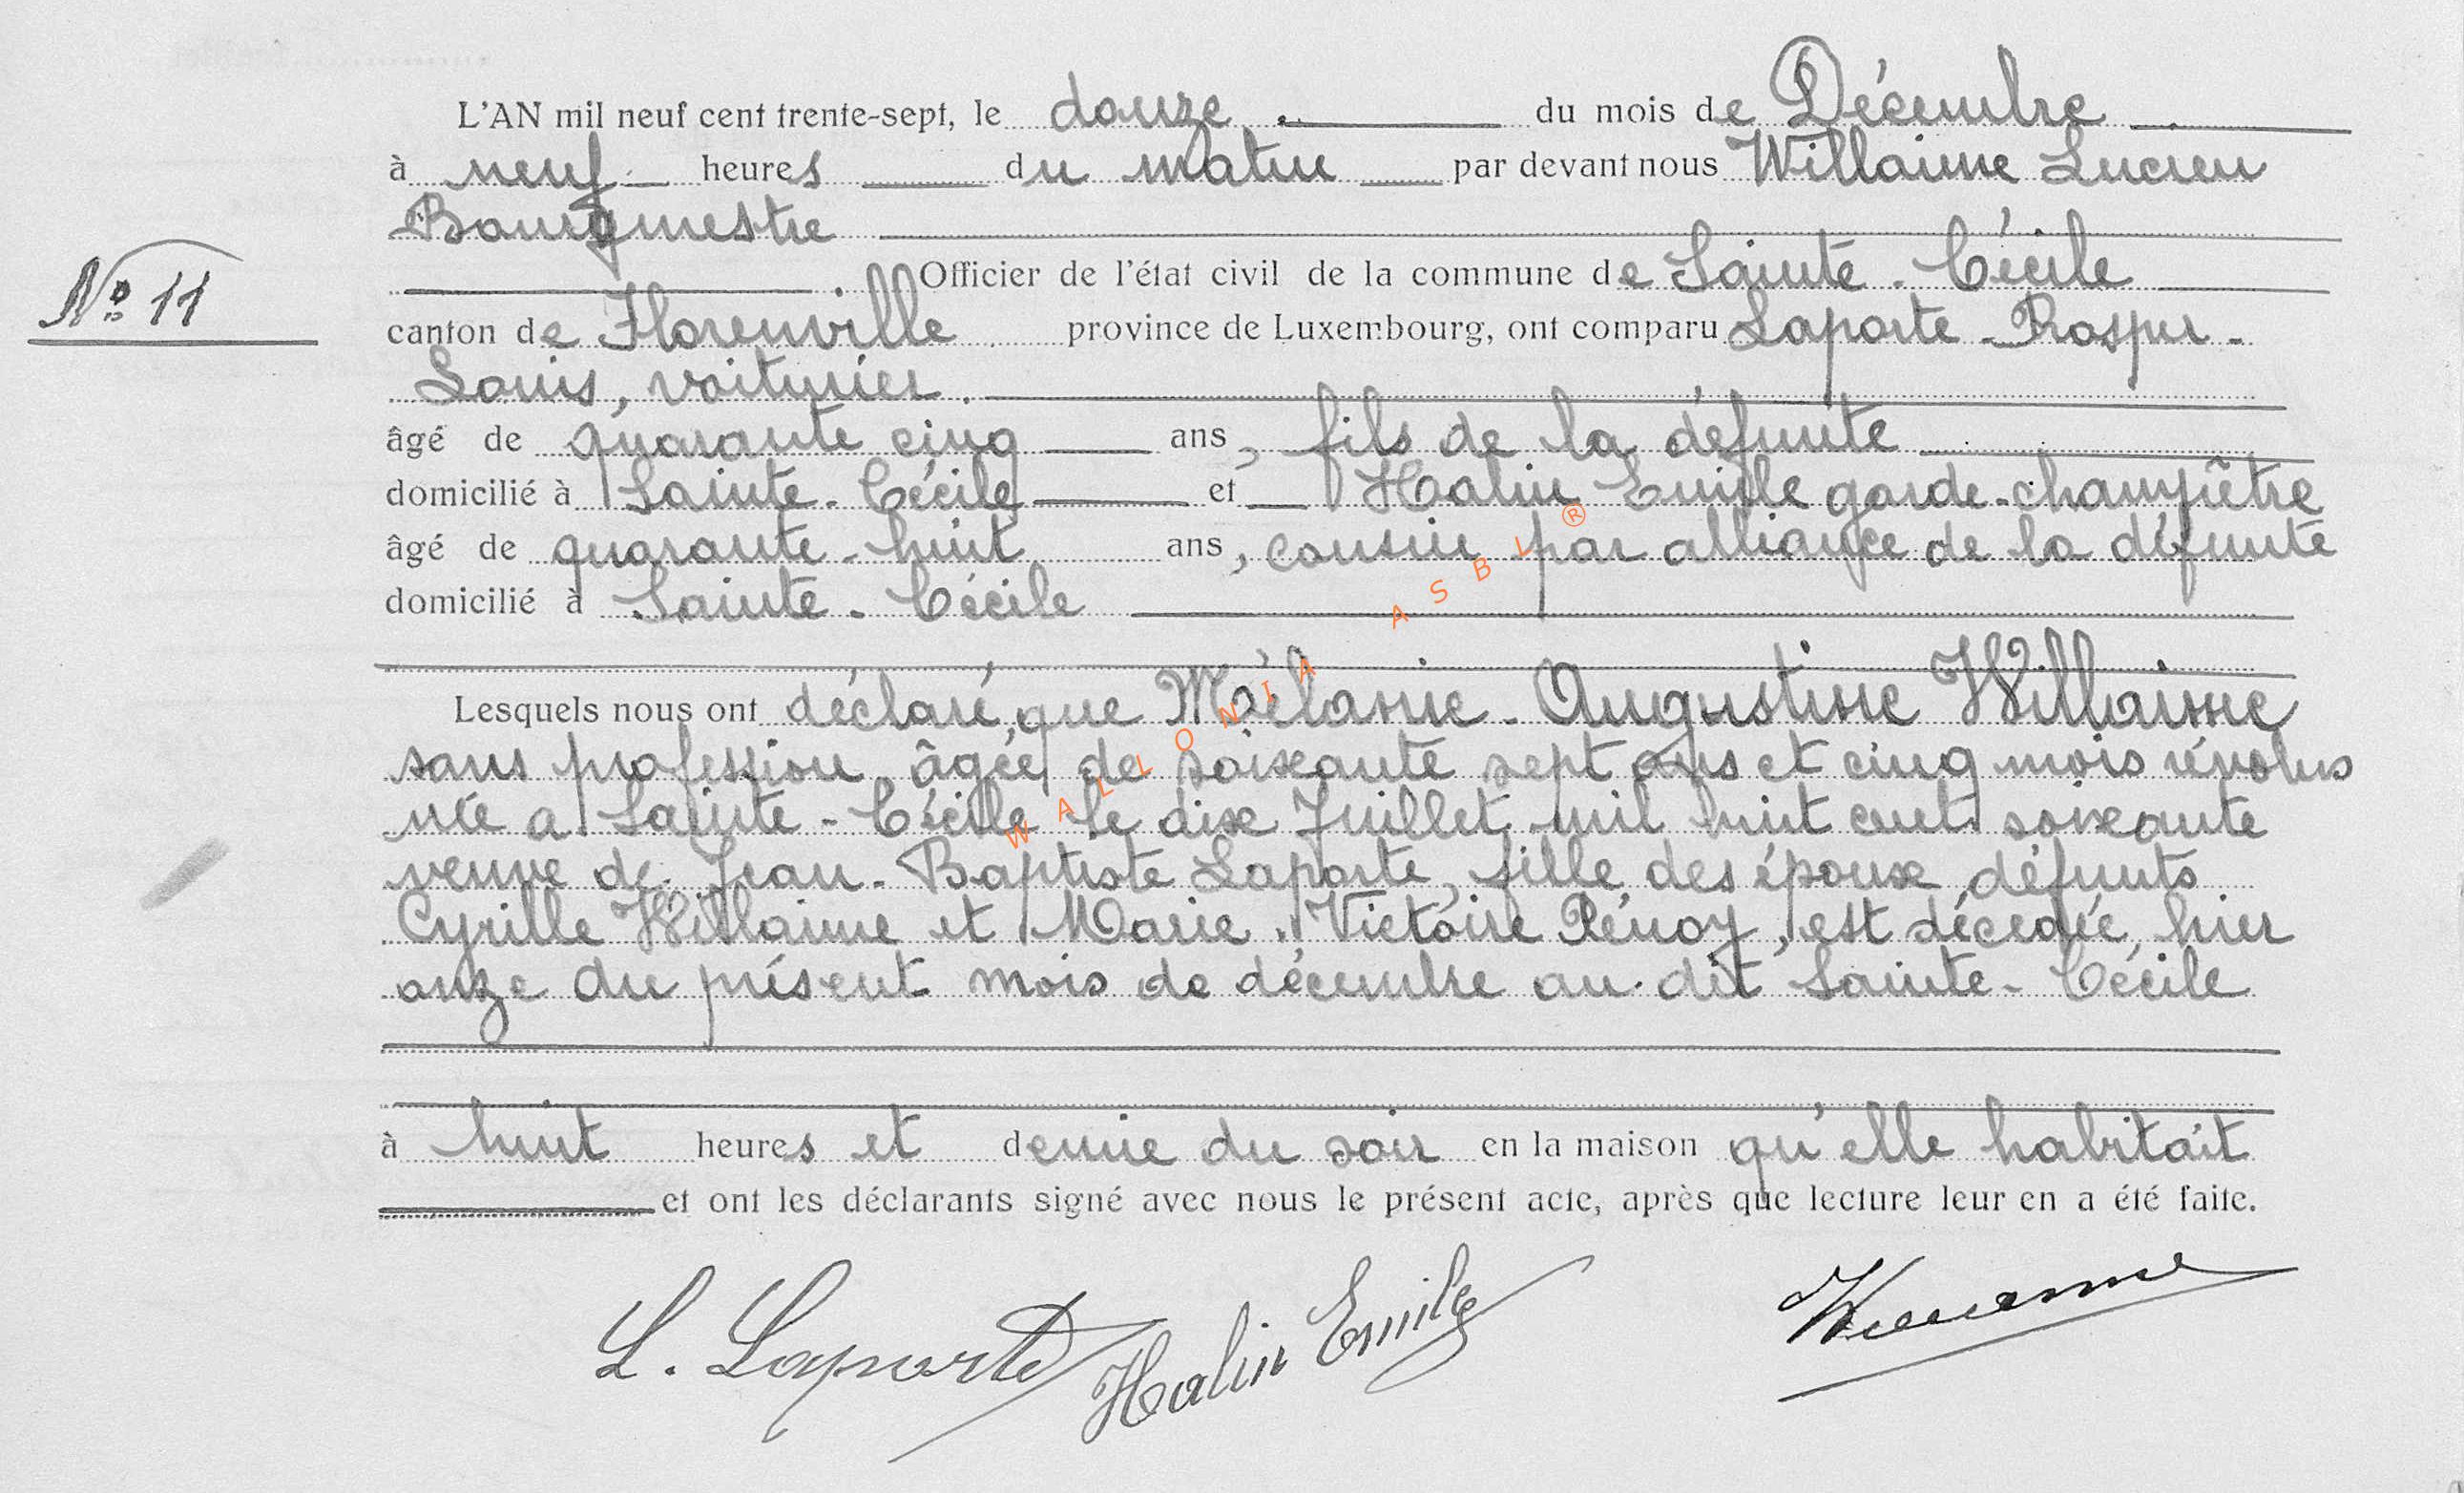 L'AN mil neuf cent trente-sept, le douze du mois de Décembre
à neuf heures du matin par devant nous Willaime Lucien
Bourgmestre
Officier de l'état civil de la commune de Sainte-Cécile
N° 11
canton de Florenville province de Luxembourg, ont comparu Laporte Prosper-
Louis, voiturier.
âgé de quarante cinq ans, fils de la défunte
domicilié à Sainte-Cécile et Halin Emile garde-champêtre
âgé de quarante-huit ans, cousin par alliance de la défunte
domicilié à Sainte-Cécile
Lesquels nous ont déclaré, que Mélanie-Augustine Willaime
sans profession, âgée de soixante sept ans et cinq mois révolus
née a Sainte-Cécile le dix Juillet mil huit cent soixante
veuve de Jean-Baptiste Laporte, fille des époux défunts
Cyrille Willaime et Marie-Victoire Pénoy, est décedée, hier
onze du présent mois de décembre au dit Sainte-Cécile
à huit heures et demie du soir en la maison qu'elle habitait
et ont les déclarants signé avec nous le présent acte, après que lecture leur en a été faite.
L. Laporte Halin Emile Willaime
WALLONIA ASBL ®